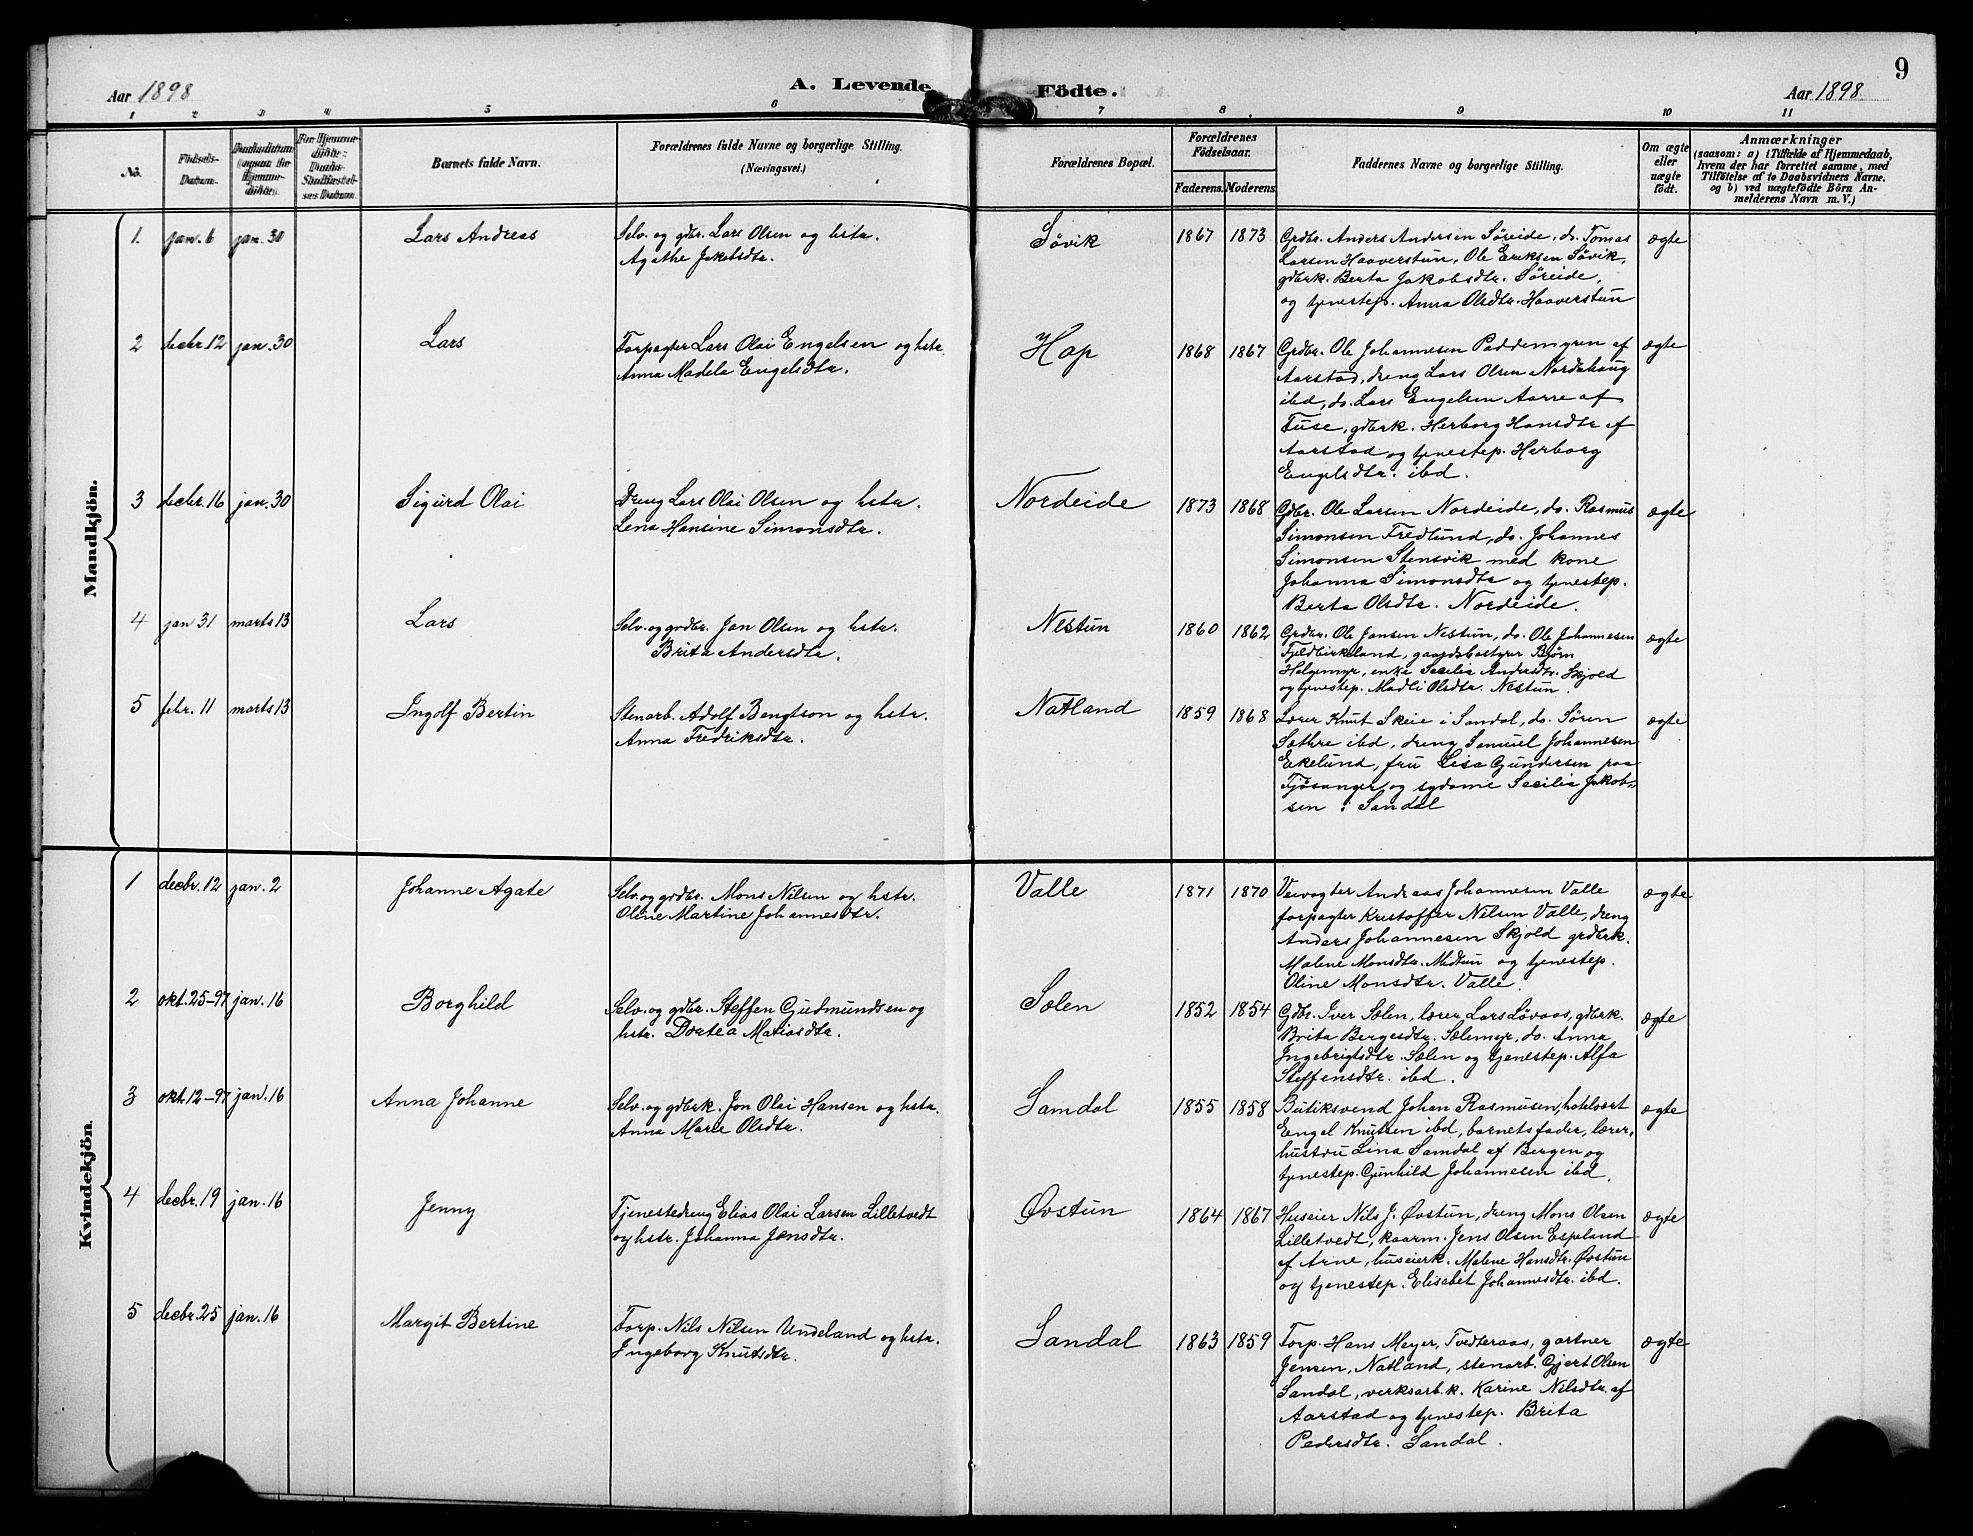 9
Aar 1898
A. Levende Födte.
Aar 1898
1 2 3 4 5 6 7 8 9 10 11
No.
Födsels-
Datum.
Barnets fulde Navn.
Forældrenes fulde Navne og borgerlige Stilling.
(Næringsvei.)
Forældrenes Bopæl.
Forældrenes
Födselsaar.
Faderens. Moderens.
Faddernes Navne og borgerlige Stilling.
Om ægte
eller
uægte
födt.
Anmærkninger
(saasom: a) i Tilfælde af Hjemmedaab,
hvem der har forrettet samme, med
Tilföielse af to Daabsvidners Navne.
og b) ved uægtefödte Börn An-
melderens Navn m. V.)
Mandkjön.
1. jan. 6 jan. 30 Lars Andreas
Selv. og gdbr. Lars Olsen og hstr.
Agathe Jakobsdtr.
Søvik 1867 1873
Grdbr. Anders Andersen Søreide, do. Tomas
Larsen Haaverstun, Ole Eriksen Søvik,
gdbrk. Berta Jakobsdtr. Søreide,
og tjenestep. Anna Olsdtr. Haaverstun
ægte
2 decbr. 12 jan. 30 Lars
Forpagter Lars Olai Engelsen og hstr.
Anna Madela Engelsdtr.
Hop 1868 1867
Grdbr. Ole Johannesen Paddemyren af
Aarstad, dreng Lars Olsen Nordahaug
ibd, do. Lars Engelsen Aarre af
Fuse, gdbrk. Herborg Hansdtr af
Aarstad og tjenestep. Herborg
Engelsdtr. ibd.
ægte
3 decbr. 16 jan. 30 Sigurd Olai
Dreng Lars Olai Olsen og hstr.
Lena Hansine Simonsdtr.
Nordeide 1873 1868
Gdbr. Ole Larsen Nordeide, do. Rasmus
Simonsen Fredlund, do. Johannes
Simonsen Stensvik med kone
Johanna Simonsdtr og tjenestep.
Berta Olsdtr. Nordeide.
ægte
4 jan 31 marts 13 Lars
Selv. og grdbr. Jan Olsen og hstr.
Brita Andersdtr.
Nestun 1860 1862
Grdbr. Ole Jansen Nestun, do. Ole Johannesen
Fjeldbirkeland, gaardsbestyrer Bjørn
Helgemyr, enke Secilia Andersdtr. Skjold
og tjenestep. Madli Olsdtr. Nestun.
ægte
5 febr. 11 marts 13 Ingolf Bertin
Stenarb. Adolf Bengtson og hstr.
Anna Fredriksdtr.
Natland 1859 1868
Lærer Knut Skeie i Sandal, do. Søren
Sæthre ibd, dreng Samuel Johannesen
Ekelund, fru Lisa Gundersen paa
Fjøsanger og sydame Secilia Jakob-
sen i Sandal
ægte
Kvindekjön.
1 decbr. 12 jan. 2 Johanne Agate
Selv. og grdbr. Mons Nilsen og hstr.
Oline Martine Johannesdtr.
Valle 1871 1870
Veivogter Andreas Johannesen Valle
forpagter Kristoffer Nilsen Valle, dreng
Anders Johannesen Skjold grdbrk.
Malene Monsdtr. Midtun og tjenestep.
Oline Monsdtr. Valle.
ægte
2 okt. 25-97 jan. 16 Borghild
Selv. og gdbr. Steffen Gudmundsen og
hstr. Dortea Matiasdtr.
Sælen 1852 1854
Gdbr. Iver Sælen, lærer Lars Løvaas, gdbrk.
Brita Bergesdtr. Sælemyr, do. Anna
Ingebrigtsdtr. Sælen og tjenestep. Alfa
Steffensdtr. ibd.
ægte
3 okt. 12-97 jan. 16 Anna Johanne
Selv. og gdbrk. Jon Olai Hansen og hstr.
Anna Marie Olsdtr.
Samdal 1855 1858
Butiksvend Johan Rasmusen, hotelvært
Engel Knutsen ibd, barnets fader, lærer-
hustru Lina Samdal af Bergen og
tjenestep. Gunhild Johannesen ibd.
ægte
4 decbr. 19 jan. 16 Jenny
Tjenestedreng Elias Olai Larsen Lilletvedt
og hstr. Johanna Jensdtr.
Øvstun 1864 1867
Huseier Nils J. Øvstun, dreng Mons Olsen
Lilletvedt, kaarm. Jens Olsen Espeland
af Arne, huseierk. Malene Hansdtr. Øvstun
og tjenestep. Elisabet Johannesdtr. ibd.
ægte
5 decbr. 25 jan. 16 Margit Bertine
Forp. Nils Nilsen Undeland og hstr.
Ingeborg Knutsdtr.
Sandal 1863 1859
Forp. Hans Meyer, Tvedteraas, gartner
Jensen, Natland, stenarb. Gjert Olsen
Sandal, verksarb.k. Karine Nilsdtr. af
Aarstad og tjenestep. Brita
Pedersdtr. Sandal.
ægte